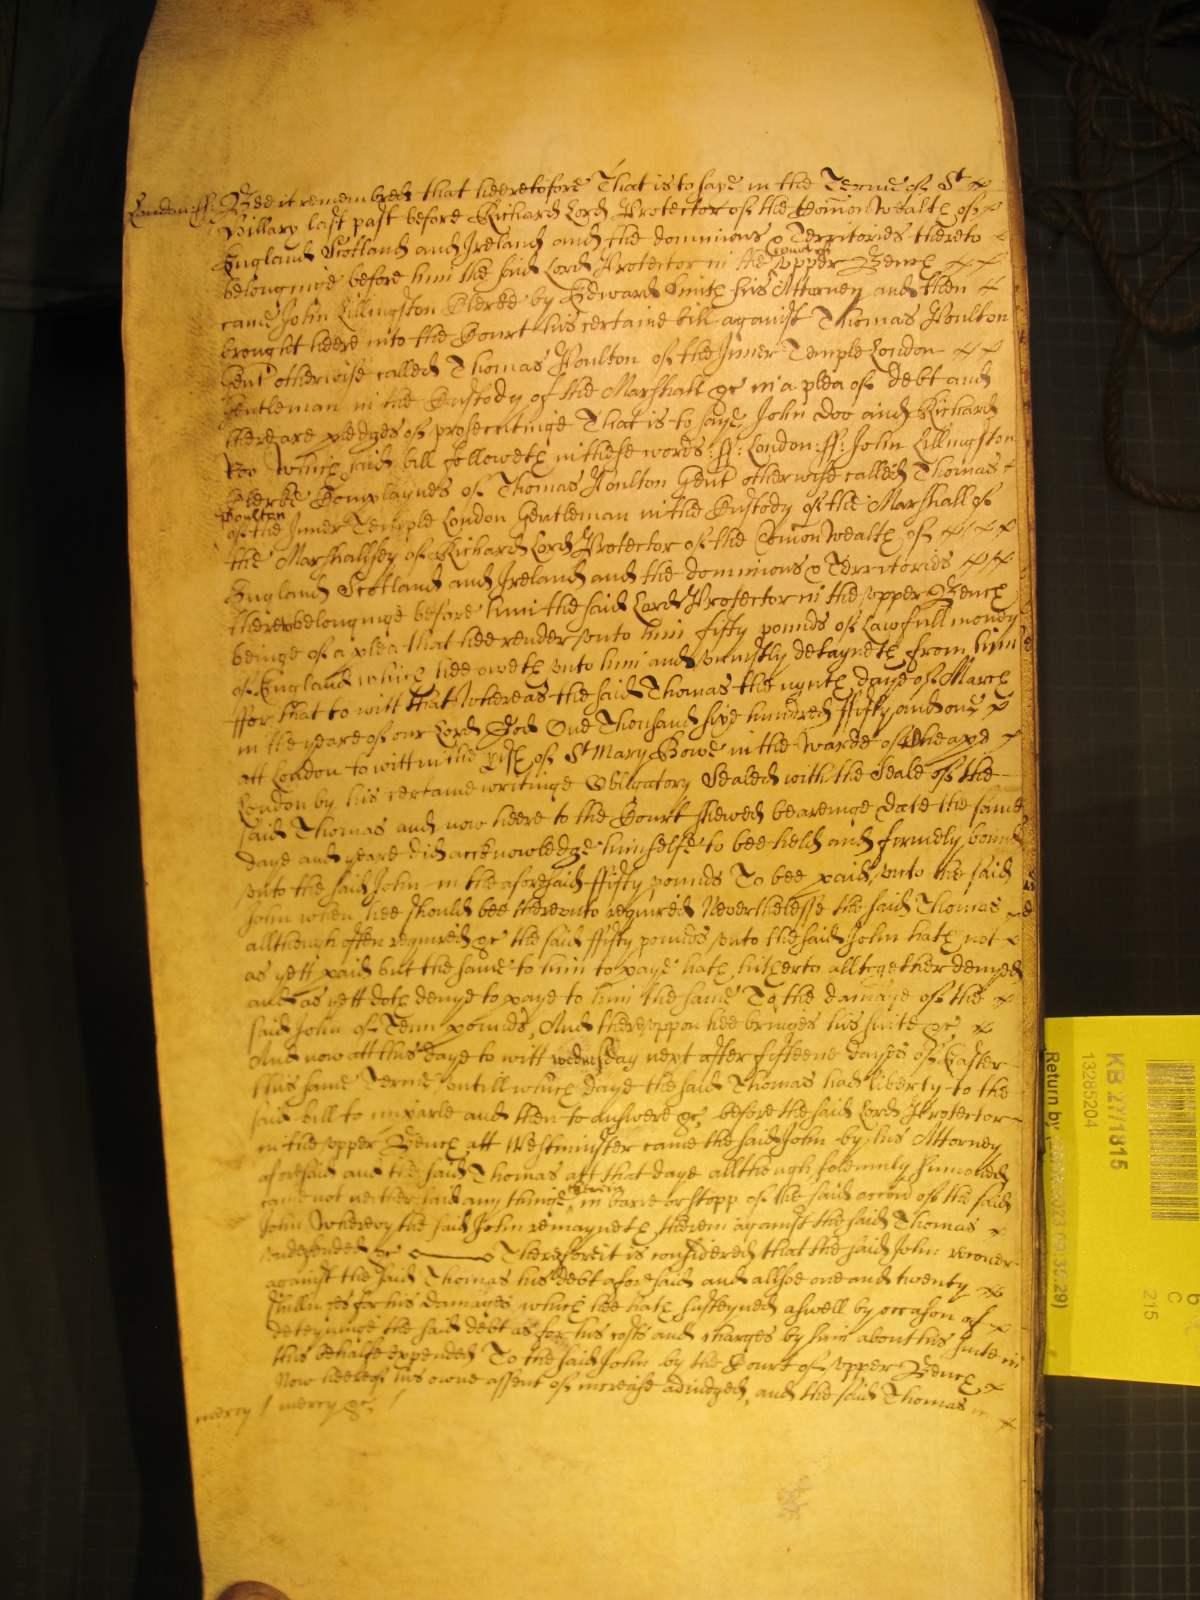 London: ff: Bee it remembred that heeretofore That is to saye in the Terme of St
Hillary last past before Richard Lord Protector of the Com̃on Wealth of
England Scotland and Ireland and the dominions & Territories thereto
belonginge before him the said Lord Protector in the upper Bench
came John Lillingston Clerke by Edward Smith his Attorney and then
brought heere into the Court his certaine bill against Thomas Poulton
Gent otherwise called Thomas Poulton of the Inner Temple London
Gentleman in the Custody of the Marshall &c in a plea of debt and
there are pledges of prosecutinge That is to saye John Doo and Richard
Roo Which said bill followeth in these words: ff: London: ff: John Lillingston
Clerke Complaynes of Thomas Poulton Gent otherwise called Thomas
Poulton
of the Inner Temple London Gentleman in the Custody of the Marshall of
the Marshallsey of Richard Lord Protector of the Com̃on Wealth of
England Scotland and Ireland and the dominions & Territories
thereto belonginge before him the said Lord Protector in the upper Bench
beinge of a plea that hee render unto him fifty pounds of Lawfull money
of England which hee oweth unto him and uniustly detayneth from him
ffor that to witt that Whereas the said Thomas the daye of March
in the yeare of our Lord God One Thousand six hundred ffifty and one
att London to witt in the pish of St Mary Bowe in the Warde of Cheape
London by his certaine writinge Obligatory Sealed with the Seale of the
said Thomas and now heere to the Court shewed beareinge Date the same
daye and yeare did acknowledge himselfe to bee held and firmely bound
unto the said John in the aforesaid ffifty pounds To bee paid unto the said
John when hee should bee thereunto required Neverthelesse the said Thomas
allthough often required &c the said ffifty pounds unto the said John hath not
as yett paid but the same to him to paye hath hitherto alltogether denyed
and as yett doth denye to paye to him the same To the damage of the
said John of Tenn pounds, And thereuppon hee bringes his suite &c
And now att this daye to witt wednesday next after fifteene dayes of Easter
this same Terme untill which daye the said Thomas had liberty to the
said bill to imparle and then to Answere &c before the said Lord Protector
in the upper Bench att Westminster came the said John by his Attorney
aforesaid and the said Thomas att that daye allthough solemnly sum̃oned
came not neither said any thinge in barre or stopp of the said accon of the said
John Whereby the said John remayneth therein against the said Thomas
undefended &c Therefore it is considered that the said John recover
against the said Thomas his debt aforesaid and allsoe one and twenty
shillinges for his Damages which hee hath susteyned aswell by occasion of
deteyninge the said debt as for his costs and charges by him about his suite in
this behalfe expended To the said John by the Court of upper Bench
Now heere of his owne assent of increase adiudged, and the said Thomas in
mercy / mercy &c /
KB 27/1815
13285204
Return by
C
215